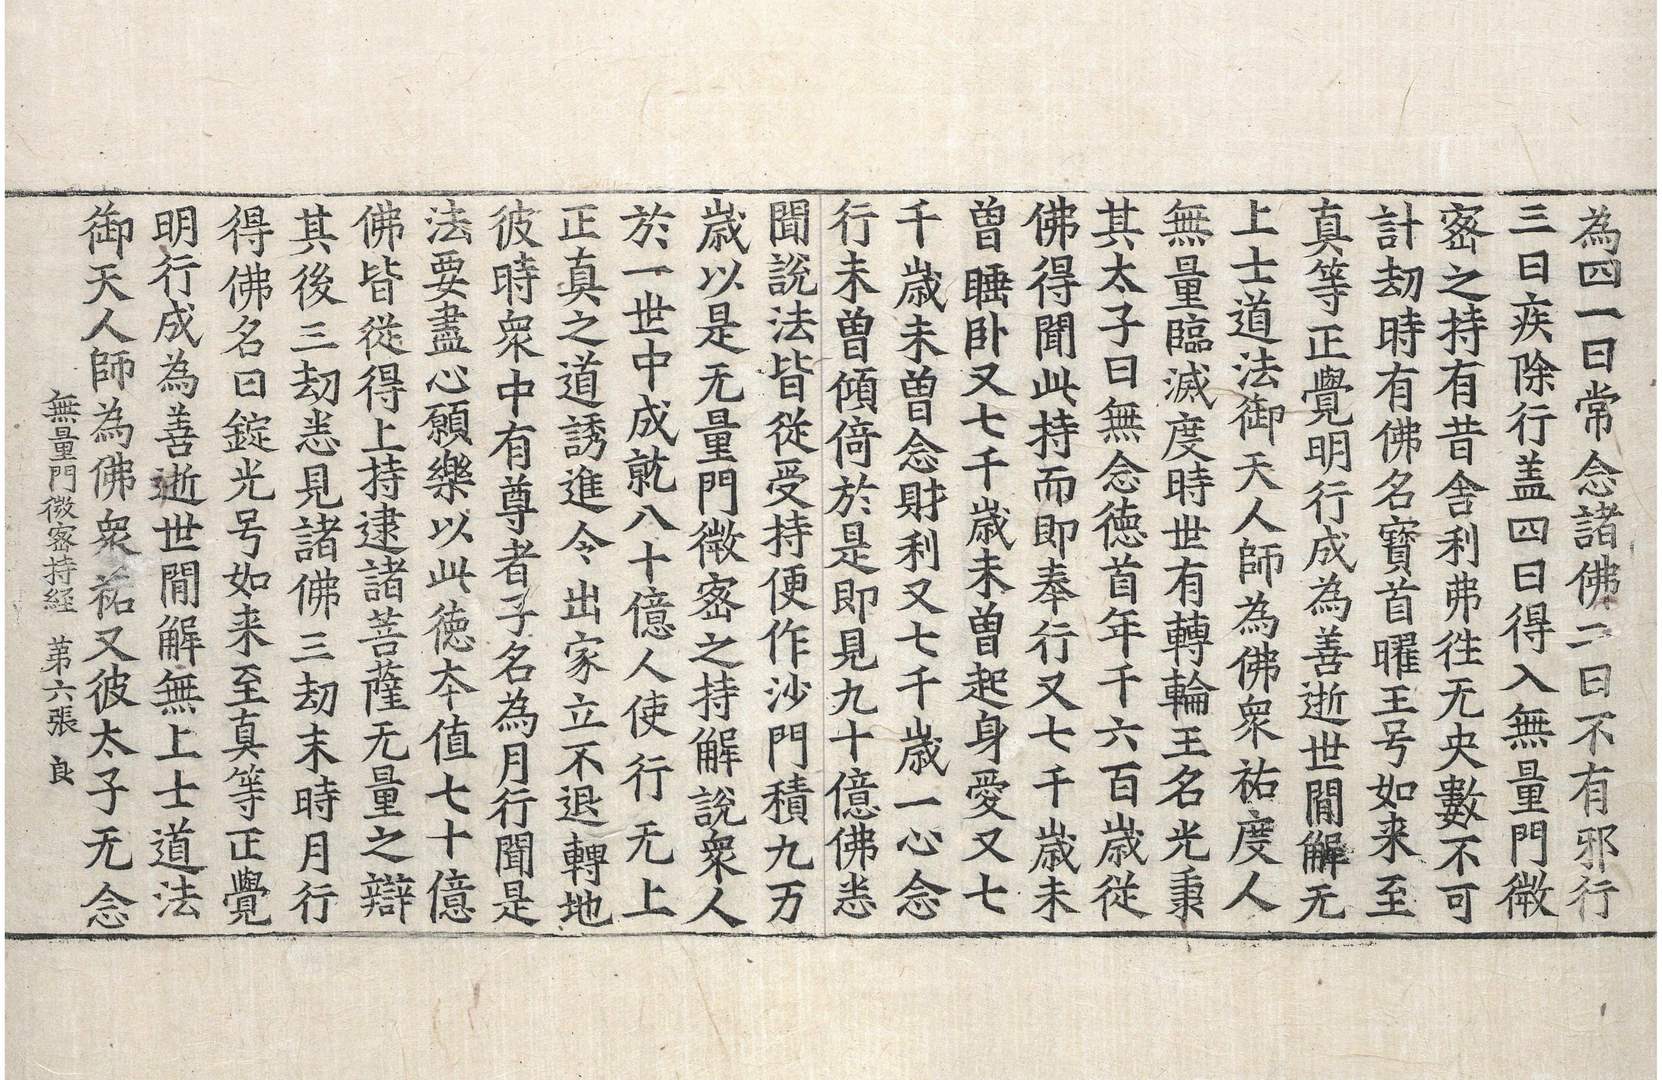 為四一曰常念諸佛二曰不有邪行
三曰疾除行盖四曰得入無量門微
宻之持有昔舍利弗徃无央數不可
計劫時有佛名寶首曜王号如来至
真等正覺明行成為善逝世閒解无
上士道法御天人師為佛衆祐度人
無量臨滅度時世有轉輪王名光秉
其太子曰無念徳首年千六百歳従
佛得聞此持而即奉行又七千歳未
曽睡卧又七千歳未曽起身愛又七
千歳未曽念財利又七千歳一心念
行未曽傾倚於是即見九十億佛悉
聞說法皆従受持便作沙門積九万
歳以是无量門微宻之持解說衆人
於一世中成就八十億人使行无上
正真之道誘進令出家立不退轉地
彼時衆中有尊者子名為月行聞是
法要盡心願樂以此徳夲值七十億
佛皆従得上持逮諸菩薩无量之辯
其後三劫悉見諸佛三劫末時月行
得佛名曰錠光号如来至真等正覺
明行成為善逝世閒解無上士道法
御天人師為佛衆祐又彼太子无念
無量門微宻持経　第六張　良